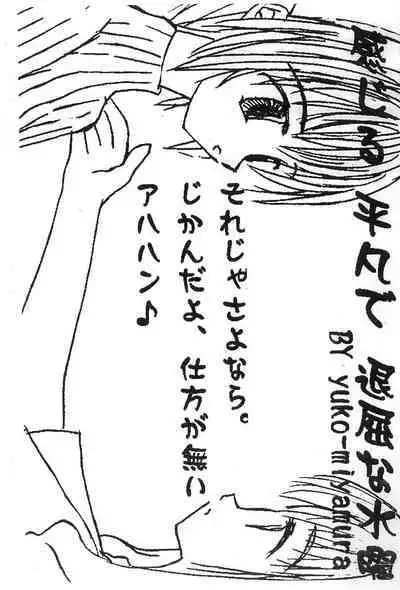 感じる 平凡で 退屈な水曜
BY yuko-miyamura
それじゃさよなら。
じかんだよ、仕方が無い
アハハン♪